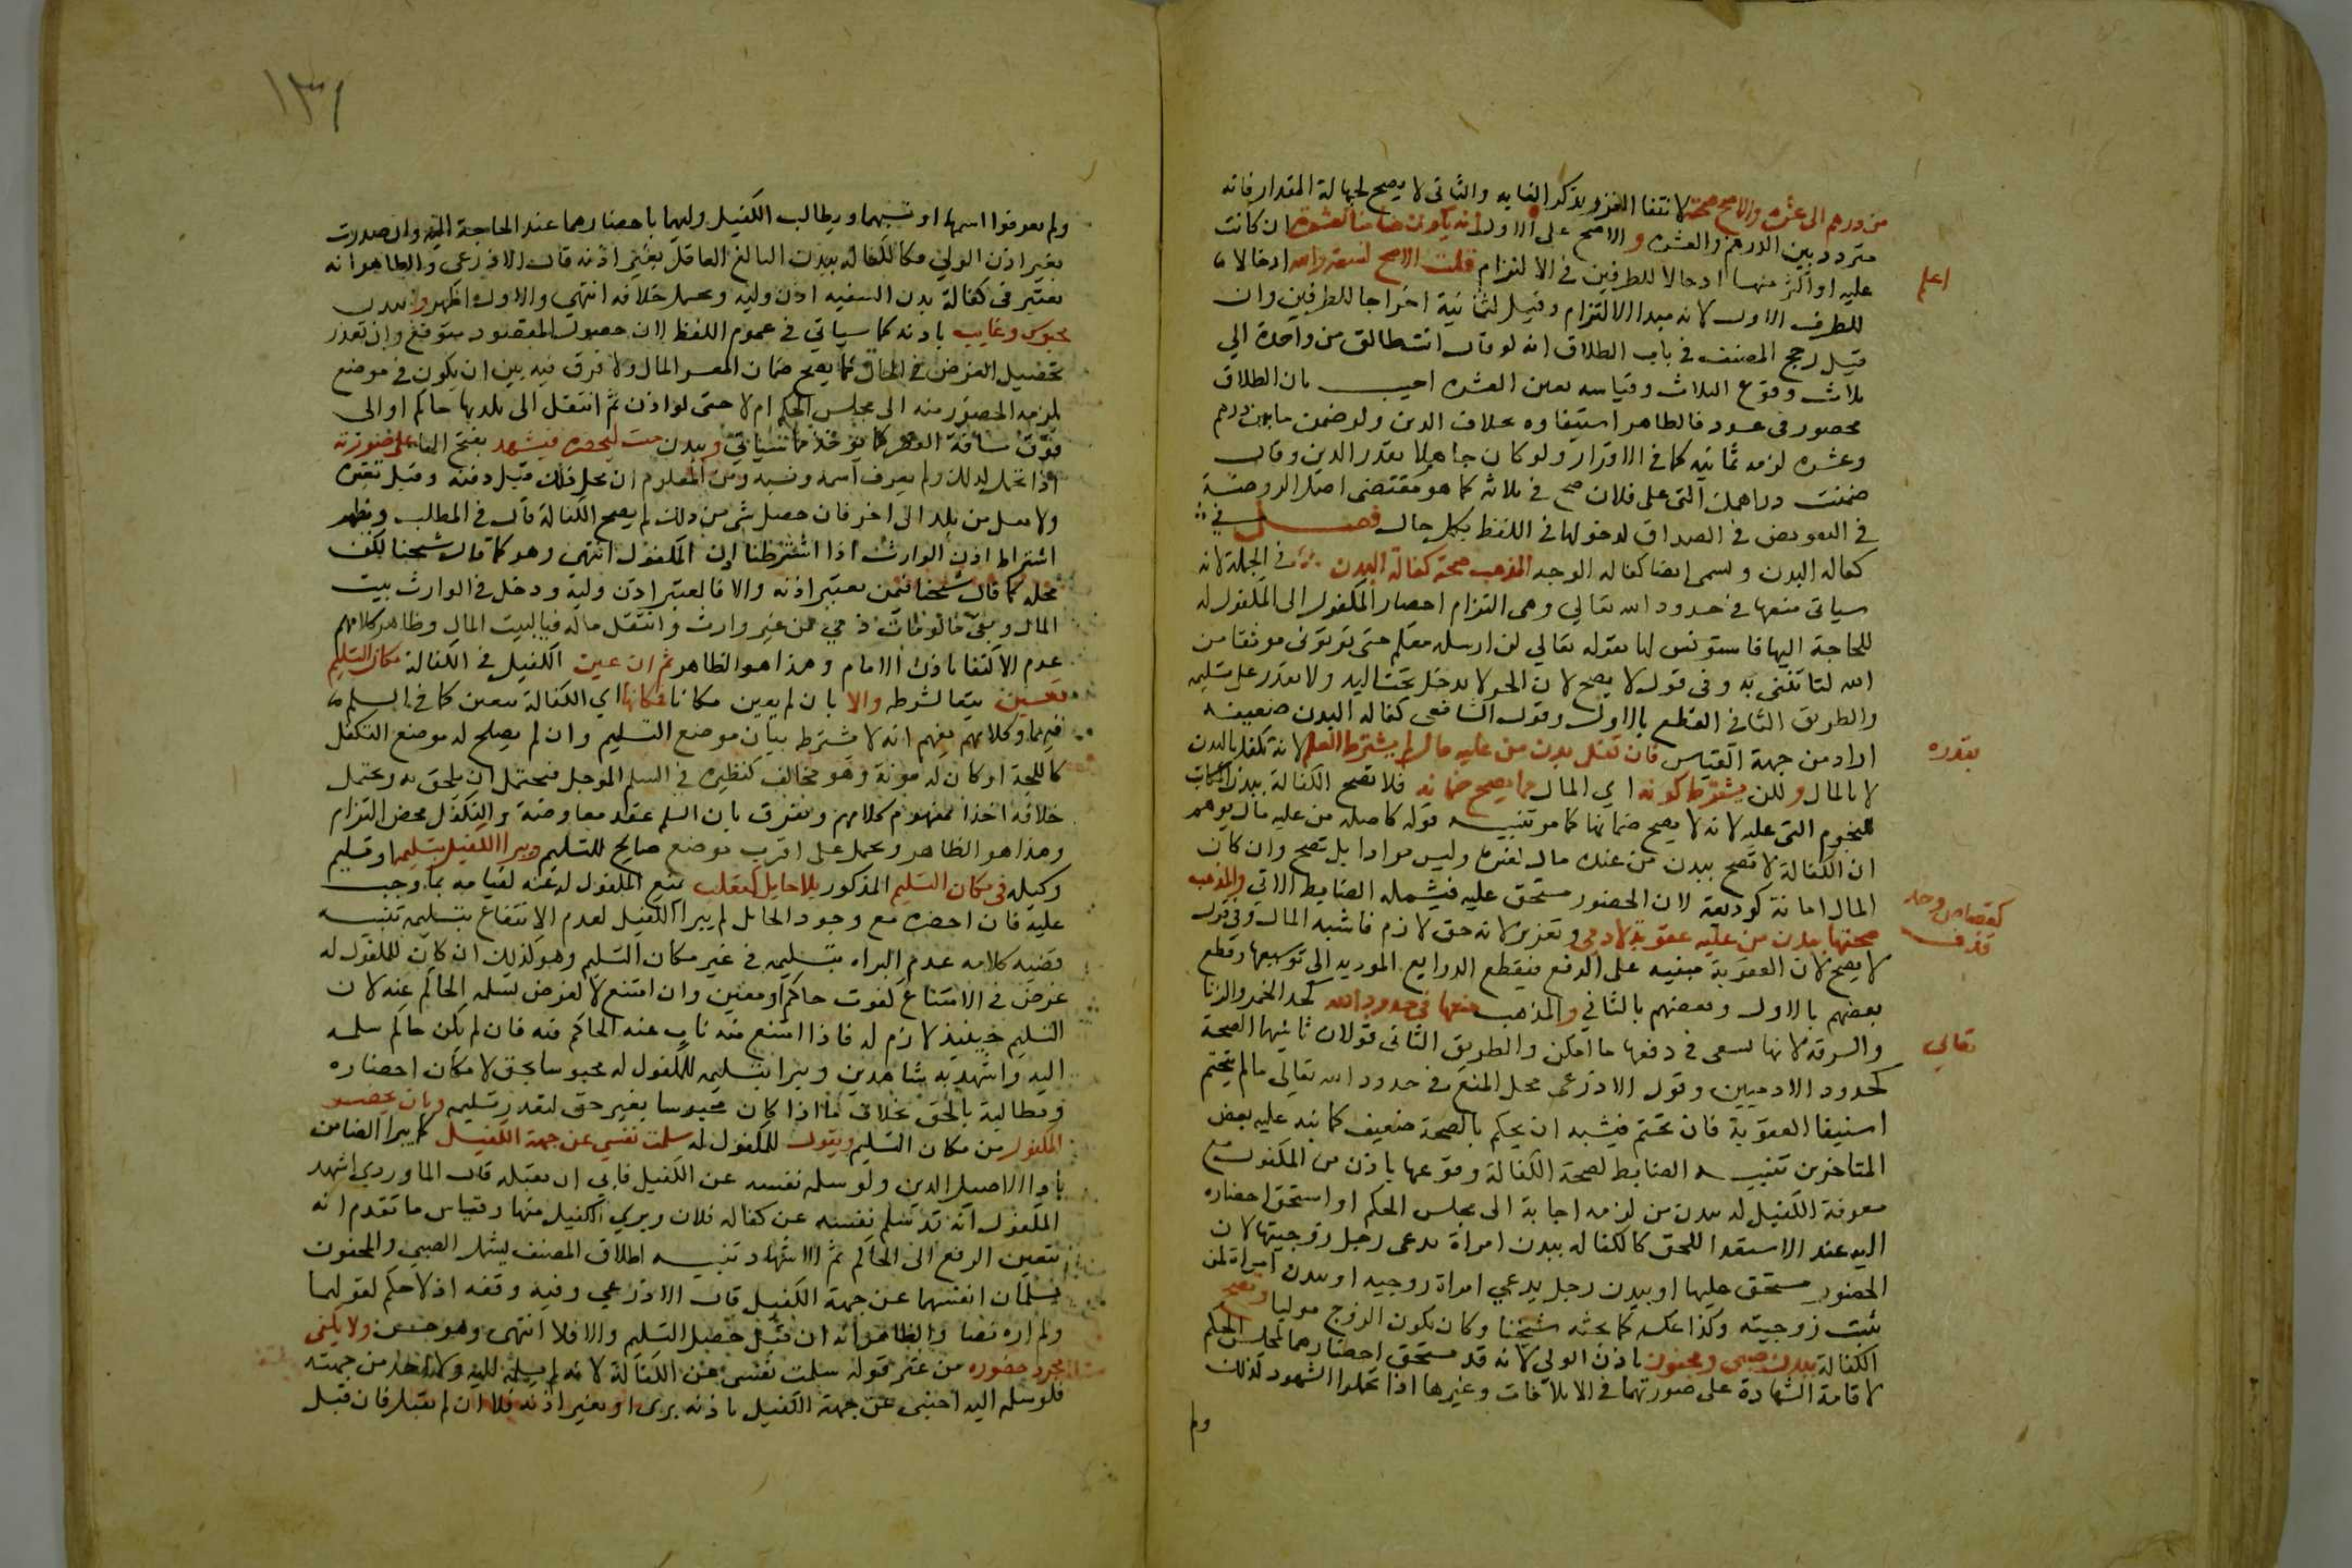 من درهم الى عشره والاصح صحته لانتفا الغرر بذكر الغايه والثاني لا يصح لجهالة المقدار فانه
متردد بين الدرهم والعشره والاصح على الاول انه يكون ضامنا لعشرة ان كانت
عليه او اكثر منها ادخالا للطرفين في الالتزام قلت الاصح لتسعة والله ادخالا
اعلم
للطرف الاول لانه مبدا الالتزام وقيل لثمانية اخراجا للطرفين وان
قيل رجح المصنف في باب الطلاق انه لو قال انت طالق من واحدة الي
ثلاث وقوع الثلاث وقياسه تعين العشره اجيب بان الطلاق
محصور في عدد فالظاهر استيفاوه بخلاف الدين ولو ضمن ما بين درهم
وعشره لزمه ثمانيه كما في الاقرار ولو كان جاهلا بقدر الدين وقال
ضمنت دراهمك التي على فلان صح في ثلاثة كما هو مقتضى اصل الروضة
في التعويض في الصداق لدخولها في اللفظ بكل حال فصل في
كفالة البدن وتسمى ايضا كفالة الوجه المذهب صحة كفالة البدن في الجملة لانه
سياتي منعها في حدود الله تعالي وهي التزام احضار المكفول الى المكفول له
للحاجة اليها فاستونس لها بقوله تعالي لن ارسله معكم حتى توتوني موثقا من
الله لتاتنني به وفي قول لا يصح لان الحر لا يدخل تحت اليد ولا يقدر على تسليمه
والطريق الثاني القطع بالاول وقول الشافعي كفالة البدن ضعيفه
اراد من جهة القياس فان كفل بدن من عليه مال لم يشترط العلم لانه تكفل بالبدن
بقدره
لا بالمال ولكن يشترط كونه اي المال مما يصح ضمانه فلا تصح الكفالة ببدن المكاتب
للنجوم التي عليه لانه لا يصح ضمانها كما مر تنبيه قوله كاصله من عليه مال يوهم
ان الكفالة لا تصح ببدن من عنده مال لغيره وليس مرادا بل تصح وان كان
المال امانة كوديعة لان الحضور مستحق عليه فيشمله الضابط الاتي والمذهب
صحتها ببدن من عليه عقوبة لادمي وتعزير لانه حق لازم فاشبه المال وفي قول
كقصاص وحد
قذف
لا يصح لان العقوبة مبنيه على الدفع فيقطع الذرايع المودية الى توسيعها وقطع
بعضهم بالاول وبعضهم بالثاني والمذهب منعها في حدود الله كحد الخمر والزنا
تعالي
والسرقة لانها يسعى في دفعها ما امكن والطريق الثاني قولان ثانيهما الصحة
كحدود الادميين وقول الاذرعي محل المنع في حدود الله تعالي ما لم يتحتم
استيفا العقوبة فان تحتم فيشبه ان يحكم بالصحة ضعيف كما نبه عليه بعض
المتاخرين تنبيه الضابط لصحة الكفالة وقوعها باذن من المكفول مع
معرفة الكفيل له ببدن من لزمه اجابة الى مجلس الحكم او استحق احضاره
اليه عند الاستعدا للحق كالكفالة ببدن امراة يدعي رجل زوجيتها لان
الحضور مستحق عليها او ببدن رجل يدعي امراة زوجيه او ببدن امراة لمن
ثبت زوجيته وكذا عكسه كما بحثه شيخنا وكان يكون الزوج موليا وتصح
الكفالة ببدن صبي ومجنون باذن الولي لانه قد يستحق احضارهما لمجلس الحكم
لاقامة الشهادة على صورتهما في الاتلافات وغيرها اذا تحملوا الشهود كذلك
ولم
١٣١
ولم يعرفوا اسمهما او نسبهما ويطالب الكفيل وليهما باحضارهما عند الحاجة اليه وان صدرت
بغير اذن الولي فكالكفالة ببدن البالغ العاقل بغير اذنه قال الاذرعي والظاهر انه
يعتبر في كفالة بدن السفيه اذن وليه ويحتمل خلافه انتهي والاول اظهر وببدن
محبوس وغايب باذنه كما سياتي في عموم اللفظ لان حصول المقصود متوقع وان تعذر
تحصيل الغرض في الحال كما يصح ضمان المعسر المال ولا فرق فيه بين ان يكون في موضع
يلزمه الحضور منه الى مجلس الحكم ام لا حتى لو اذن ثم انتقل الى بلد بها حاكم او الى
فوق مسافة العدوى كما يوخذ مما سياتي وببدن ميت ليحضره فيشهد بفتح الها على صورته
اذا تحمل لذلك ولم يعرف اسمه ونسبه ومن المعلوم ان محل ذلك قبل دفنه وقبل تغيره
ولا نقل من بلد الى اخر فان حصل شي من ذلك لم يصح الكفالة قال في المطلب ويظهر
اشتراط اذن الوارث اذا اشترطنا اذن المكفول انتهى وهو كما قال شيخنا لكن
محله كما قال شيخنا فيمن يعتبر اذنه والا فالمعتبر اذن وليه ودخل في الوارث بيت
المال وبقي ما لو مات ذمي عن غير وارث وانتقل ماله فيا لبيت المال وظاهر كلامهم
عدم الاكتفا باذن الامام وهذا هو الظاهر ثم ان عين الكفيل في الكفالة مكان التسليم
تعين تبعا لشرطه والا بان لم يعين مكانا فمكانها اي الكفالة يتعين كما في السلم
فيهما وكلامهم يفهم انه لا يشترط بيان موضع التسليم وان لم يصلح له موضع التكفل
كاللجة او كان له مونة وهو مخالف لنظيره في السلم الموجل فيحتمل ان يلحق به ويحتمل
خلافه اخذا بمفهوم كلامهم ويفرق بان السلم عقد معاوضة والتكفل محض التزام
وهذا هو الظاهر ويحمل على اقرب موضع صالح للتسليم ويبرا الكفيل بتسليمه او تسليم
وكيله في مكان التسليم المذكور بلا حايل كمتغلب يمنع المكفول له عنه لقيامه بما وجب
عليه فان احضره مع وجود الحايل لم يبرا الكفيل لعدم الانتفاع بتسليمه تنبيه
قضية كلامه عدم البراه بتسليمه في غير مكان التسليم وهو كذلك ان كان للمكفول له
غرض في الامتناع كفوت حاكم او معين وان امتنع لا لغرض تسلمه الحاكم عنه لان
التسليم حينئذ لازم له فاذا امتنع منه ناب عنه الحاكم فيه فان لم يكن حاكم سلمه
اليه واشهد به شاهدين ويبرا بتسليمه للمكفول له محبوسا بحق لامكان احضاره
ومطالبته بالحق بخلاف ما اذا كان محبوسا بغير حق لتعذر تسليمه وبان يحضر
المكفول من مكان التسليم ويقول للمكفول له سلمت نفسي عن جهة الكفيل كما يبرا الضامن
بادا الاصيل الدين ولو سلم نفسه عن الكفيل فابى ان يقبله قال الماوردي اشهد
المكفول انه قد سلم نفسه عن كفالة فلان وبري الكفيل منها وقياس ما تقدم انه
يتعين الرفع الى الحاكم ثم الاشهاد تنبيه اطلاق المصنف يشمل الصبي والمجنون
يسلمان انفسهما عن جهة الكفيل قال الاذرعي وفيه وقفه اذ لا حكم لقولهما
ولم اره نصا والظاهر انه ان قبل حصل التسليم والا فلا انتهى وهو حسن ولا يكفي
مجرد حضوره من غير قوله سلمت نفسي عن الكفالة لانه لم يسلمه اليه ولا احد من جهته
فلو سلمه اليه اجنبي عن جهة الكفيل باذنه بري او بغير اذنه فلا ان لم يقبل فان قبل